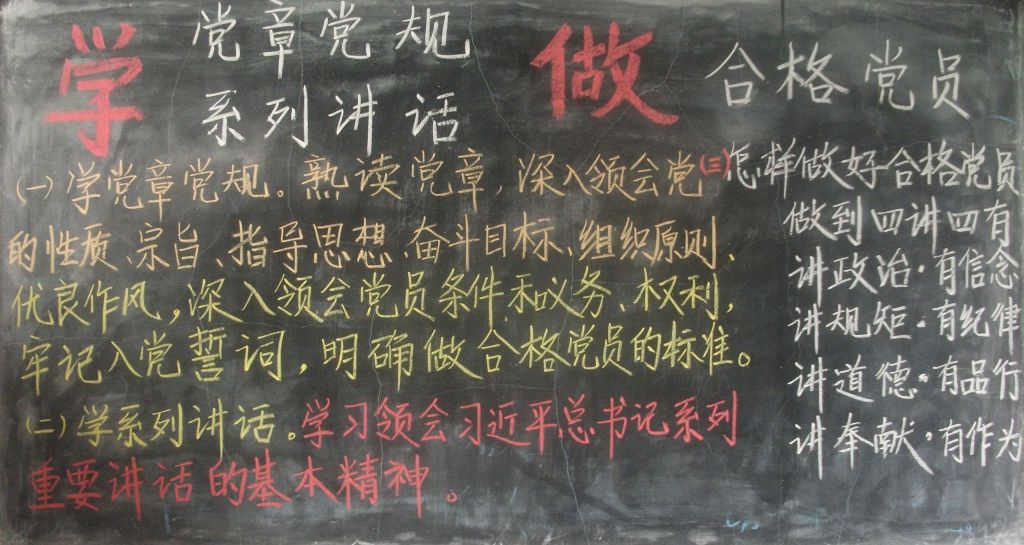 学 党章党规
系列讲话
做 合格党员
(一)学党章党规。熟读党章,深入领会党
的性质、宗旨、指导思想、奋斗目标、组织原则、
优良作风,深入领会党员条件和义务、权利,
牢记入党誓词,明确做合格党员的标准。
(二)学系列讲话。学习领会习近平总书记系列
重要讲话的基本精神。
(三)怎样做好合格党员
做到四讲四有
讲政治·有信念
讲规矩·有纪律
讲道德·有品行
讲奉献·有作为